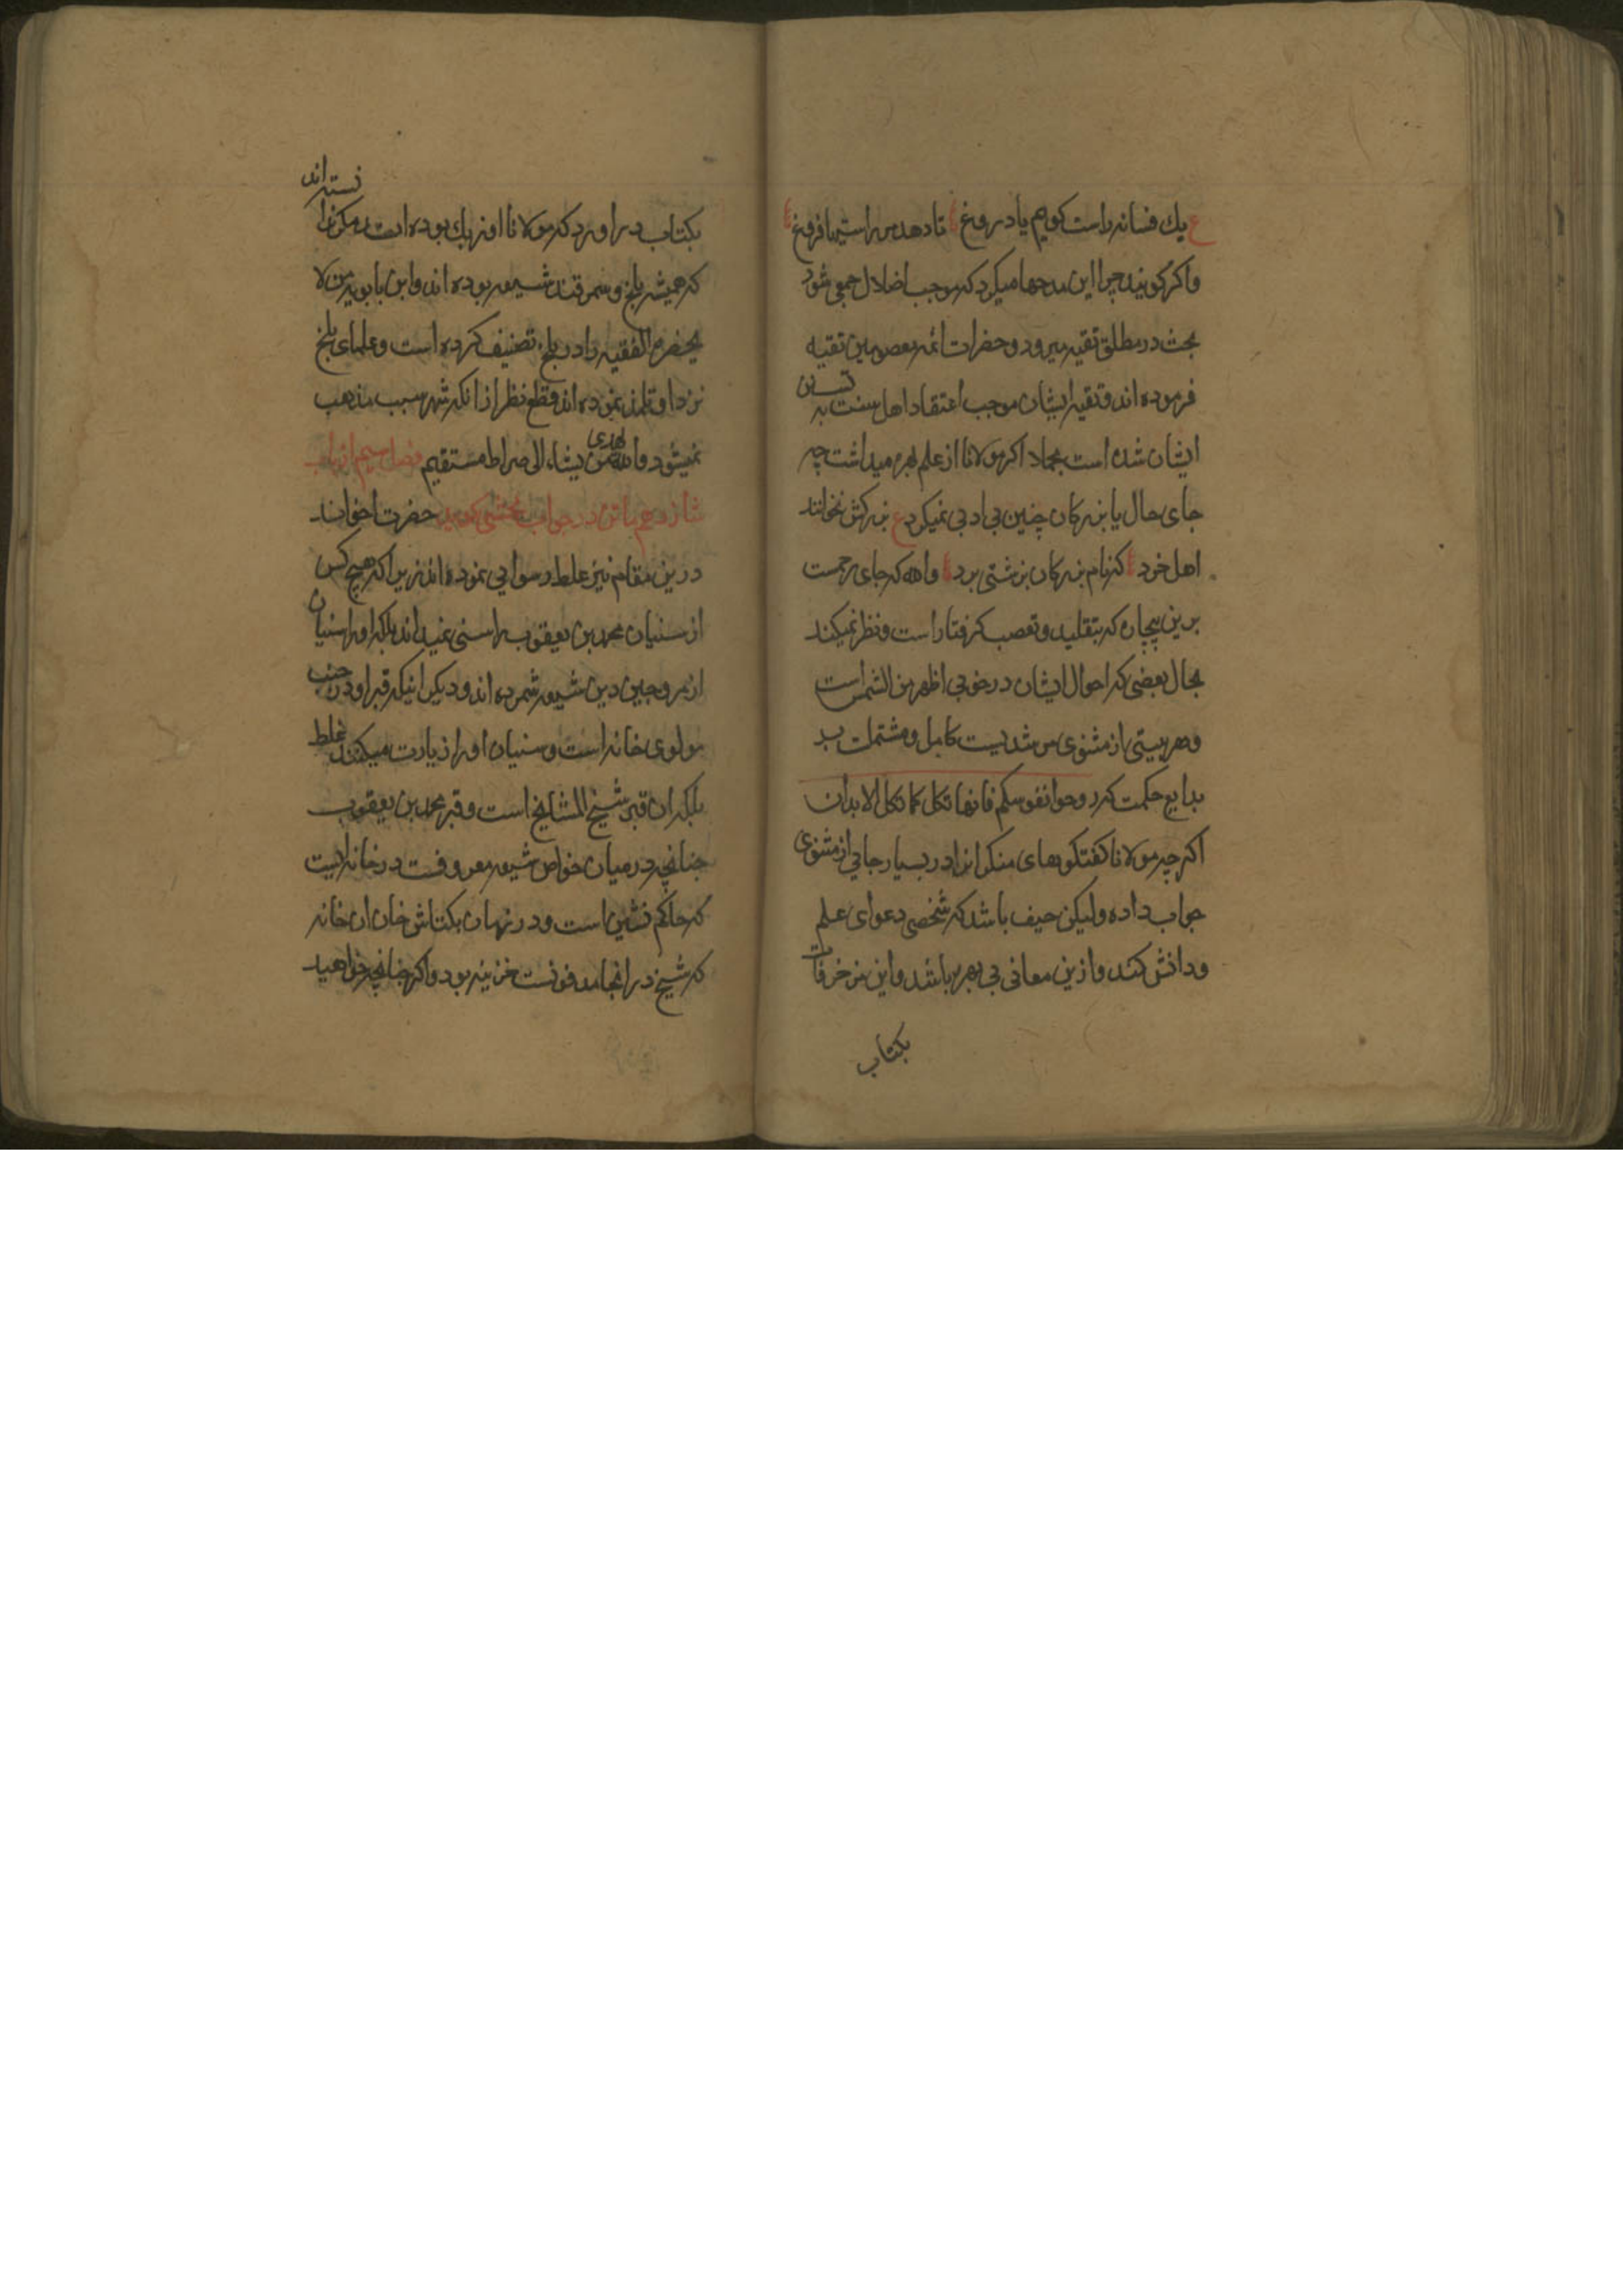 ع یك فسانه راست کویم یا دروغ تا دهد مر راستیها فروغ
واکر کویند چرا این مدحها میکرد که موجب اضلال جمعی شود
بحث در مطلق تقیه میرود و حضرات ائمه معصومین تقیه
فرموده اند و تقیه ایشان موجب اعتقاد اهل سنت به تسنن
ایشان شده است مجملا اکر مولانا از علم بهره میداشت چه
جای حال با بزرکان چنین بی ادبی نمیکرد ع بزرکش نخوانند
اهل خرد که نام بزرکان بزشتی برد والله که جای رحمست
برین بیچاره که بتقلید و تعصب کرفتار است و نظر نمیکند
بحال بعضی که احوال ایشان در خوبی اظهر من الشمس است
و هر بیتی از مثنوی مرشدیست کامل و مشتملست بر
بدایع حکمت که روحوا نفوسکم فانها تکل کما تکل الابدان
اکرچه مولانا کفتکوهای منکرانرا در بسیار جایی از مثنوی
جواب داده ولیکن حیف باشد که شخصی دعوای علم
و دانش کند و ازین معانی بی بهره باشد و این مزخرفات
بکتاب
بکتاب در اورد که مولانا اوزبك بوده است مکر ندانسته اند
که همیشه بلخ و سمرقند شیعه بوده اند و ابن بابویه من لا
یحضره الفقیه را در بلخ تصنیف کرده است و علمای بلخ
نزد او تلمذ نموده اند و قطع نظر از انکه شهر سبب مذهب
نمیشود والله یهدی من یشاء الی صراط مستقیم فصل سیم از باب
شانزدهم باتن در جواب محشی کوید حضرت اخواند
درین مقام نیز غلط رسوایی نموده اند زیرا که هیچ کس
از سنیان محمد بن یعقوب را سنی نمیداند بلکه او را سنیان
از مروجین دین شیعه شمرده اند و دیکر اینکه قبر او در جنب
مولوی خانه است و سنیان او را زیارت میکنند غلط
بلکه ان قبر شیخ المشایخ است و قبر محمد بن یعقوب
چنانچه در میان خواص شیعه معروفست در خانه ایست
که حاکم نشین است و در زمان بکتاش خان ان خانه
که شیخ در انجا مدفونست خزینه بود و اکر چنانچه خواهید